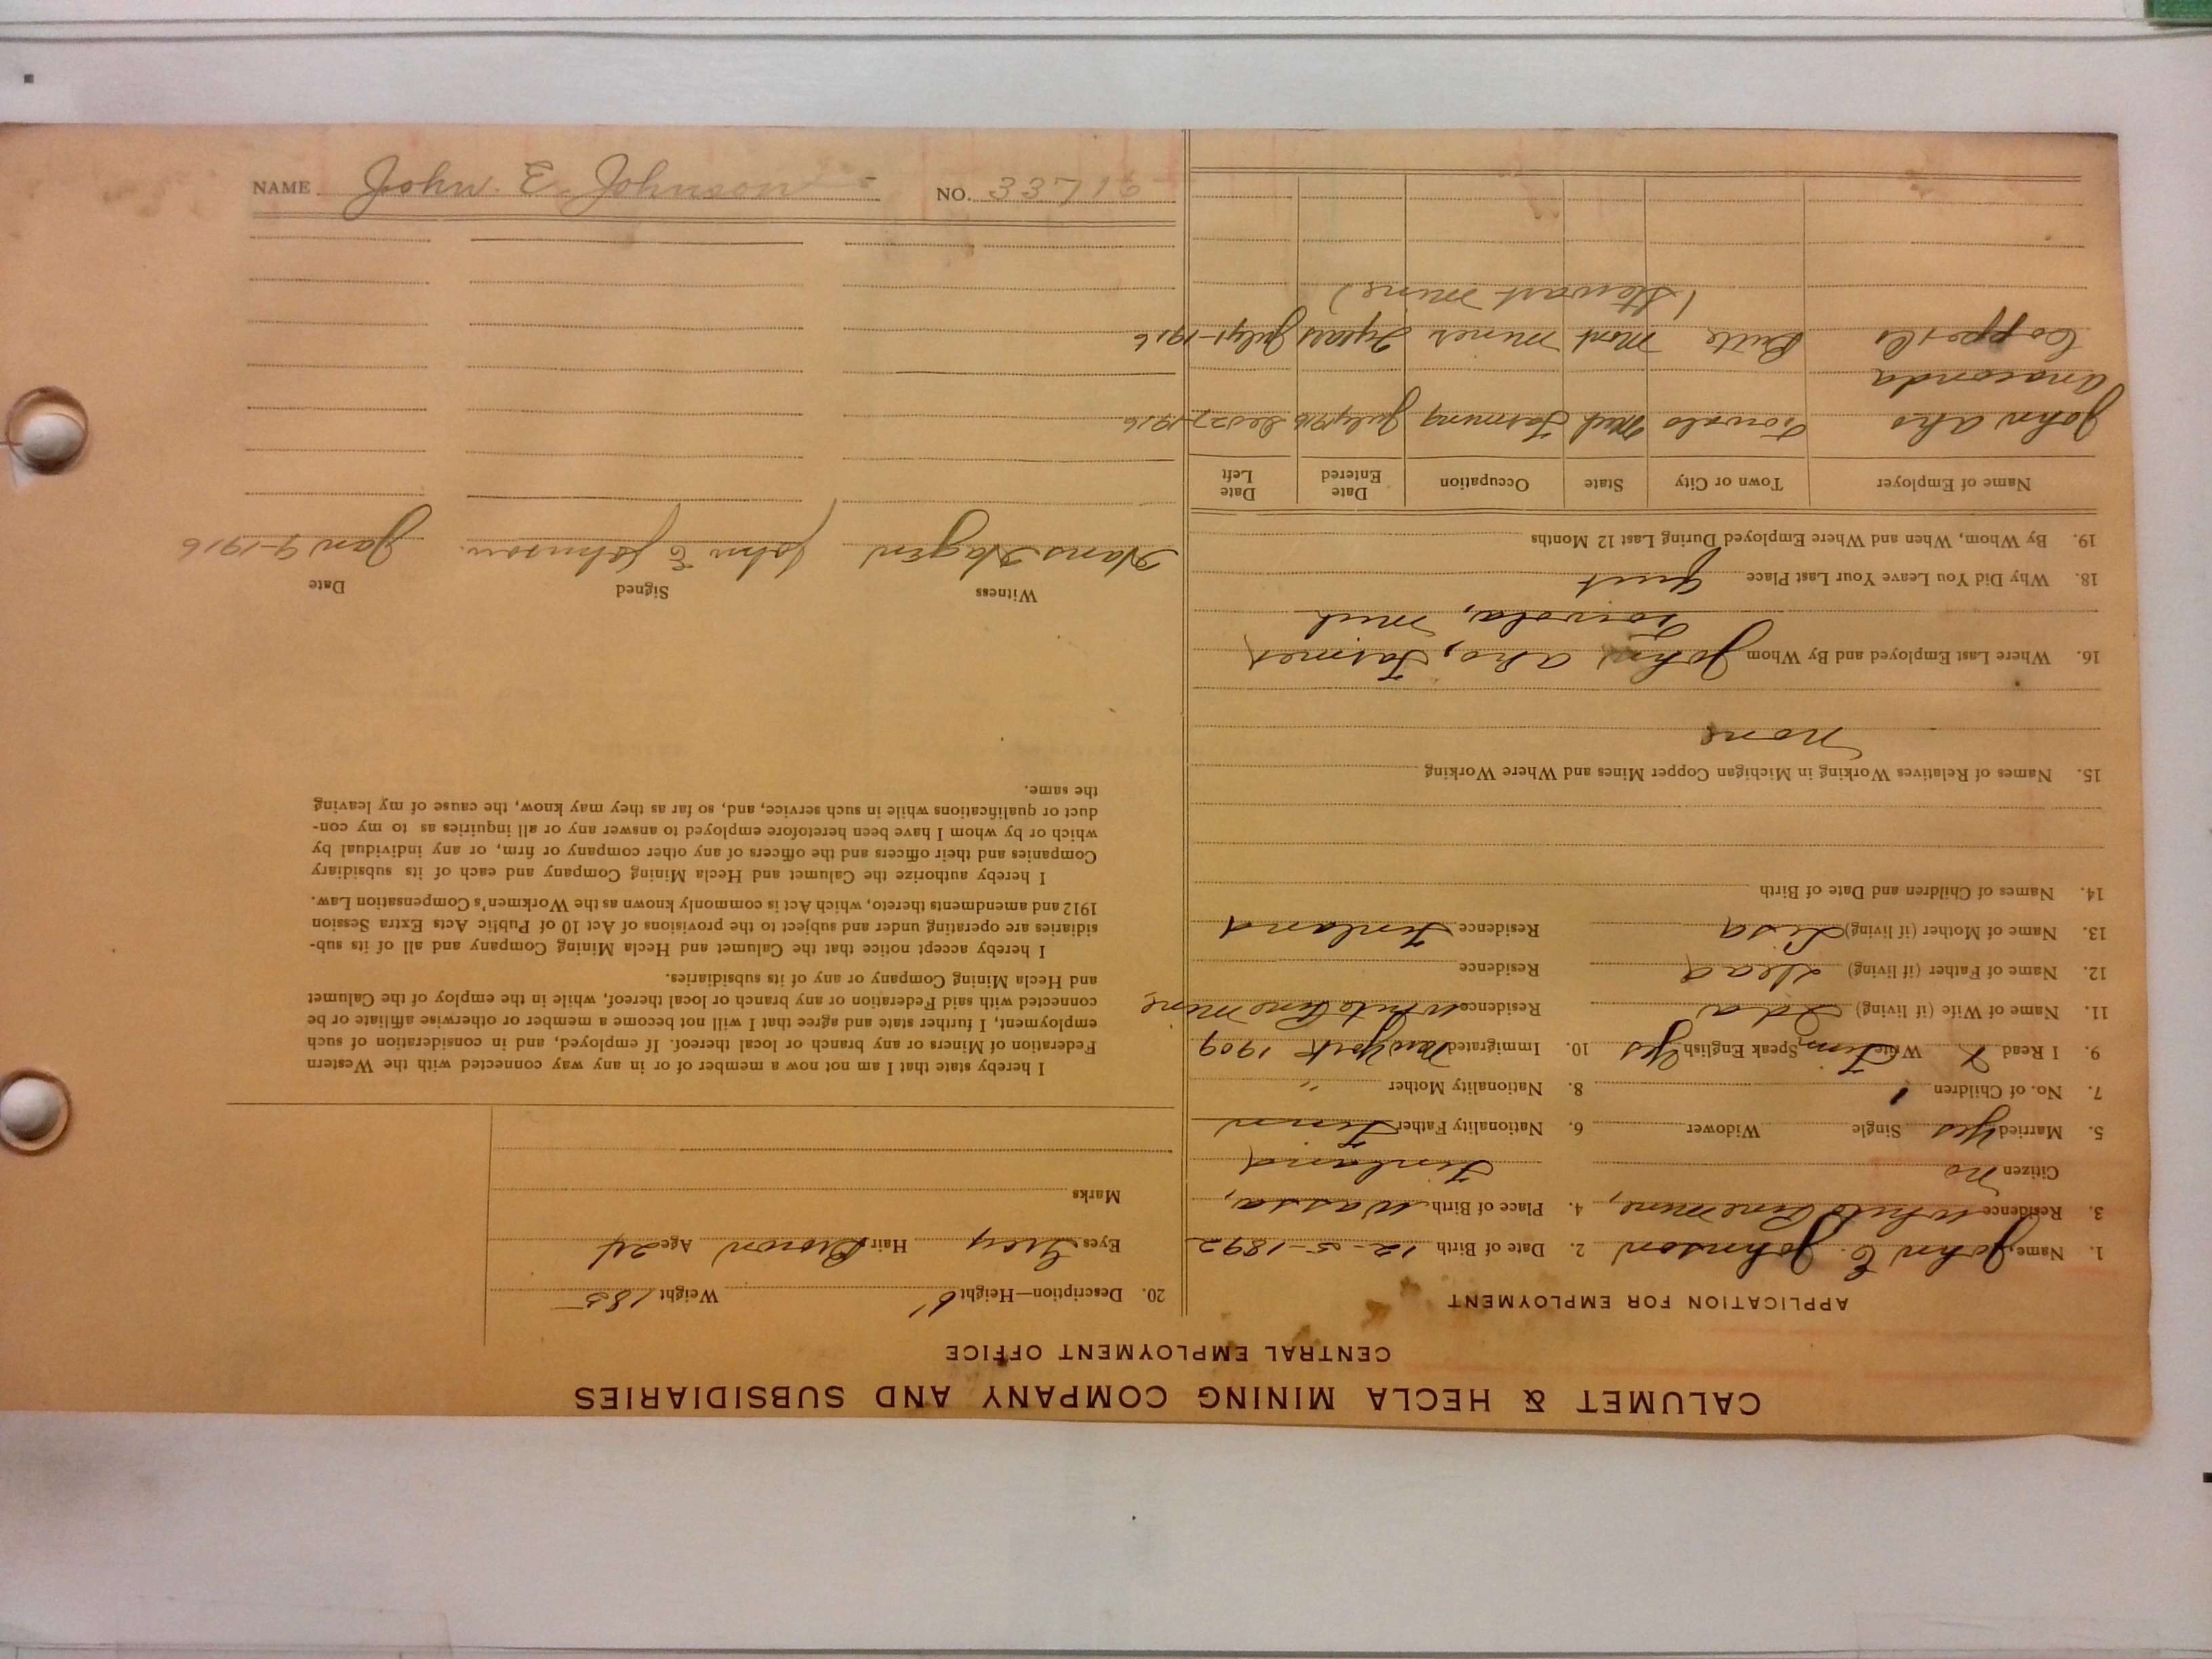 CALUMET & HECLA MINING COMPANY AND SUBSIDIARIES
CENTRAL EMPLOYMENT OFFICE
APPLICATION FOR EMPLOYMENT
1. Name John E. Johnson 2. Date of Birth 12-5-1892
3. Residence White Pine Mine, 4. Place of Birth Wassa,
Citizen No Finland
5. Married Yes Single Widower 6. Nationality Father Finn
7. No. of Children 1 8. Nationality Mother "
9. I Read & Write Finn Speak English Yes 10. Immigrated New York 1909
11. Name of Wife (if living) Ida Residence White Pine Mine
12. Name of Father (if living) Dead Residence
13. Name of Mother (if living) Lisa Residence Finland
14. Names of Children and Date of Birth
15. Names of Relatives Working in Michigan Copper Mines and Where Working
None
16. Where Last Employed and By Whom John Aho, Farmer
Toivola, Mich
18. Why Did You Leave Your Last Place Quit
19. By Whom, When and Where Employed During Last 12 Months
Name of Employer Town or City State Occupation Date Entered Date Left
John Aho Toivola Mich Farming July 1916 Dec 27-1916
Anaconda
Copper Co Butte Mont Miner 2 years July 1-1916
(Stewart Mine)
20. Description—Height 6' Weight 185
Eyes Grey Hair Brown Age 24
Marks
I hereby state that I am not now a member of or in any way connected with the Western
Federation of Miners or any branch or local thereof. If employed, and in consideration of such
employment, I further state and agree that I will not become a member or otherwise affiliate or be
connected with said Federation or any branch or local thereof, while in the employ of the Calumet
and Hecla Mining Company or any of its subsidiaries.
I hereby accept notice that the Calumet and Hecla Mining Company and all of its sub-
sidiaries are operating under and subject to the provisions of Act 10 of Public Acts Extra Session
1912 and amendments thereto, which Act is commonly known as the Workmen's Compensation Law.
I hereby authorize the Calumet and Hecla Mining Company and each of its subsidiary
Companies and their officers and the officers of any other company or firm, or any individual by
which or by whom I have been heretofore employed to answer any or all inquiries as to my con-
duct or qualifications while in such service, and, so far as they may know, the cause of my leaving
the same.
Witness Signed Date
Hans Hagen John E Johnson. Jan 9-1916
NAME John. E. Johnson - NO. 33716